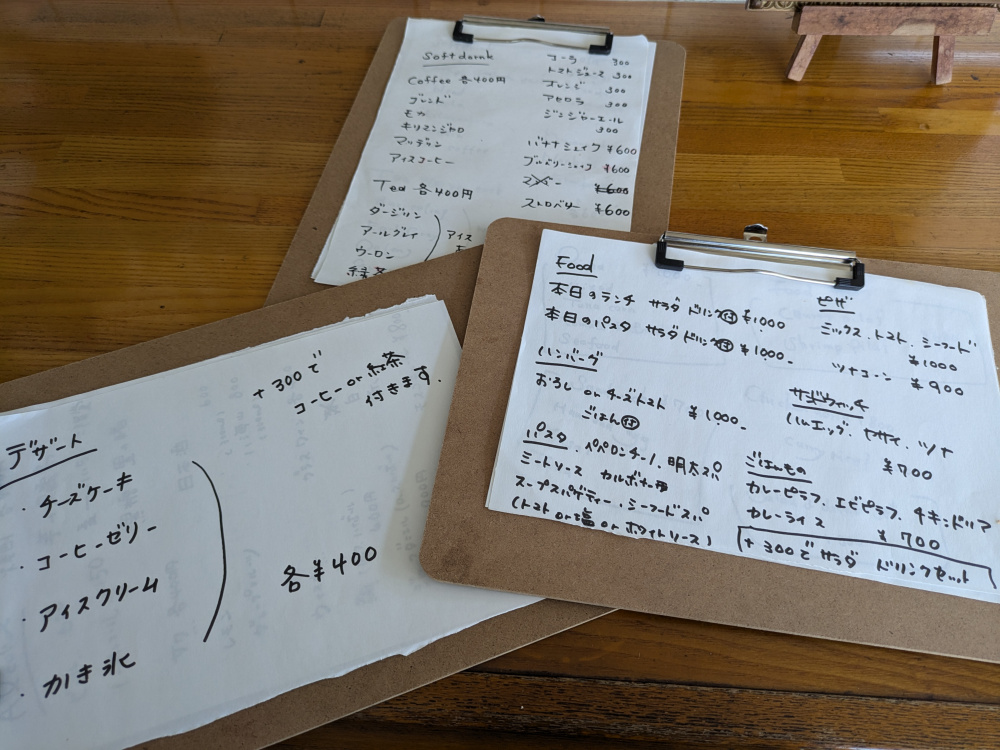 Soft drink
Coffee 各400円
ブレンド
モカ
キリマンジャロ
マンデリン
アイスコーヒー
Tea 各400円
ダージリン
アールグレイ
ウーロン
緑茶
アイス
コーラ 300
トマトジュース 300
オレンジ 300
アセロラ 300
ジンジャーエール
300
バナナシェイク ¥600
ブルーベリーシェイク ¥600
¥600
ストロベリー ¥600
Food
本日のランチ サラダ ドリンク付 ¥1000
本日のパスタ サラダ ドリンク付 ¥1000.
ハンバーグ
おろし or チーズトマト ¥1000.
ごはん付
パスタ . ペペロンチーノ. 明太スパ
ミートソース カルボナーラ
スープスパゲティー . シーフードスパ
(トマト or 塩 or ホワイトソース)
ピザ
ミックス . トマト . シーフード
¥1000
ツナコーン ¥900
サンドウィッチ
ハムエッグ . ヤサイ . ツナ
¥700
ごはんもの
カレーピラフ . エビピラフ . チキンドリア
カレーライス ¥700
+300でサラダ ドリンクセット
+300で
コーヒー or 紅茶
付きます.
デザート
・チーズケーキ
・コーヒーゼリー
・アイスクリーム
・かき氷
各¥400